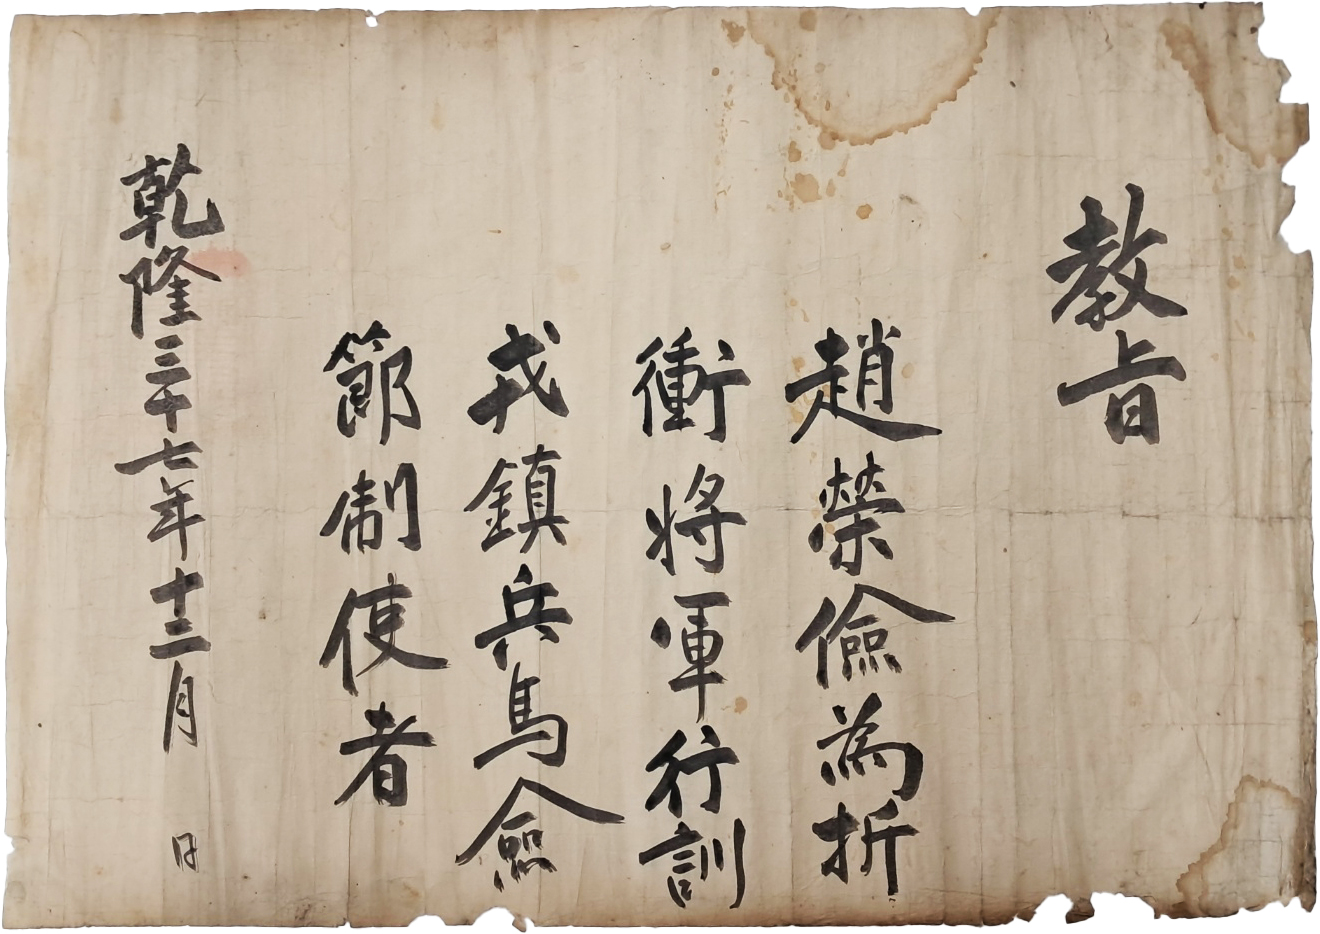 教旨
趙榮儉為折
衝將軍行訓
戎鎮兵馬僉
節制使者
乾隆三十七年十二月 日